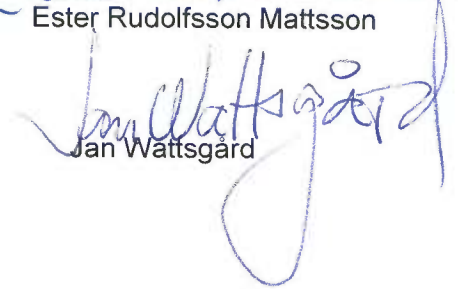 Ester Rudolfsson Mattsson
Jan Wattsgård
Jan Wattsgård